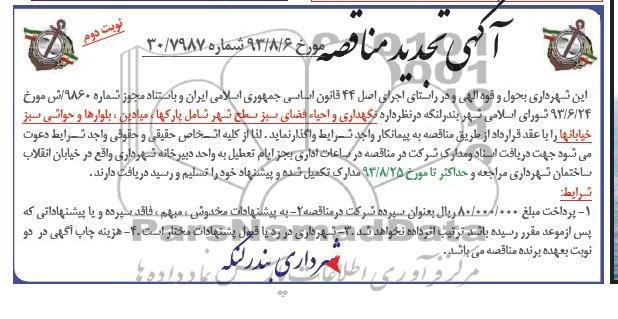 آگهی تجدید مناقصه
مورخ ۹۳/۸/۶ شماره ۳۰/۷۹۸۷
نوبت دوم
این شهرداری بحول و قوه الهی و در راستای اجرای اصل ۴۴ قانون اساسی جمهوری اسلامی ایران و باستناد مجوز شماره ۹۸۶۰/ش مورخ
۹۳/۶/۲۴ شورای اسلامی شهر بندرلنگه درنظردارد نگهداری و احیاء فضای سبز سطح شهر شامل پارکها ، میادین ، بلوارها و حواشی سبز
خیابانها را با عقد قرارداد از طریق مناقصه به پیمانکار واجد شرایط واگذارنماید . لذا از کلیه اشخاص حقیقی و حقوقی واجد شرایط دعوت
می شود جهت دریافت اسناد ومدارک شرکت در مناقصه در ساعات اداری بجز ایام تعطیل به واحد دبیرخانه شهرداری واقع در خیابان انقلاب
ساختمان شهرداری مراجعه و حداکثر تا مورخ ۹۳/۸/۲۵ مدارک تکمیل شده و پیشنهاد خود را تسلیم و رسید دریافت دارند .
شرایط:
۱- پرداخت مبلغ ۸۰/۰۰۰/۰۰۰ ریال بعنوان سپرده شرکت درمناقصه ۲- به پیشنهادات مخدوش ، مبهم ، فاقد سپرده و یا پیشنهاداتی که
پس ازموعد مقرر رسیده باشد ترتیب اثرداده نخواهد شد . ۳- شهرداری در رد یا قبول پیشنهادات مختار است . ۴- هزینه چاپ آگهی در دو
نوبت بعهده برنده مناقصه می باشد .
شهرداری بندرلنگه